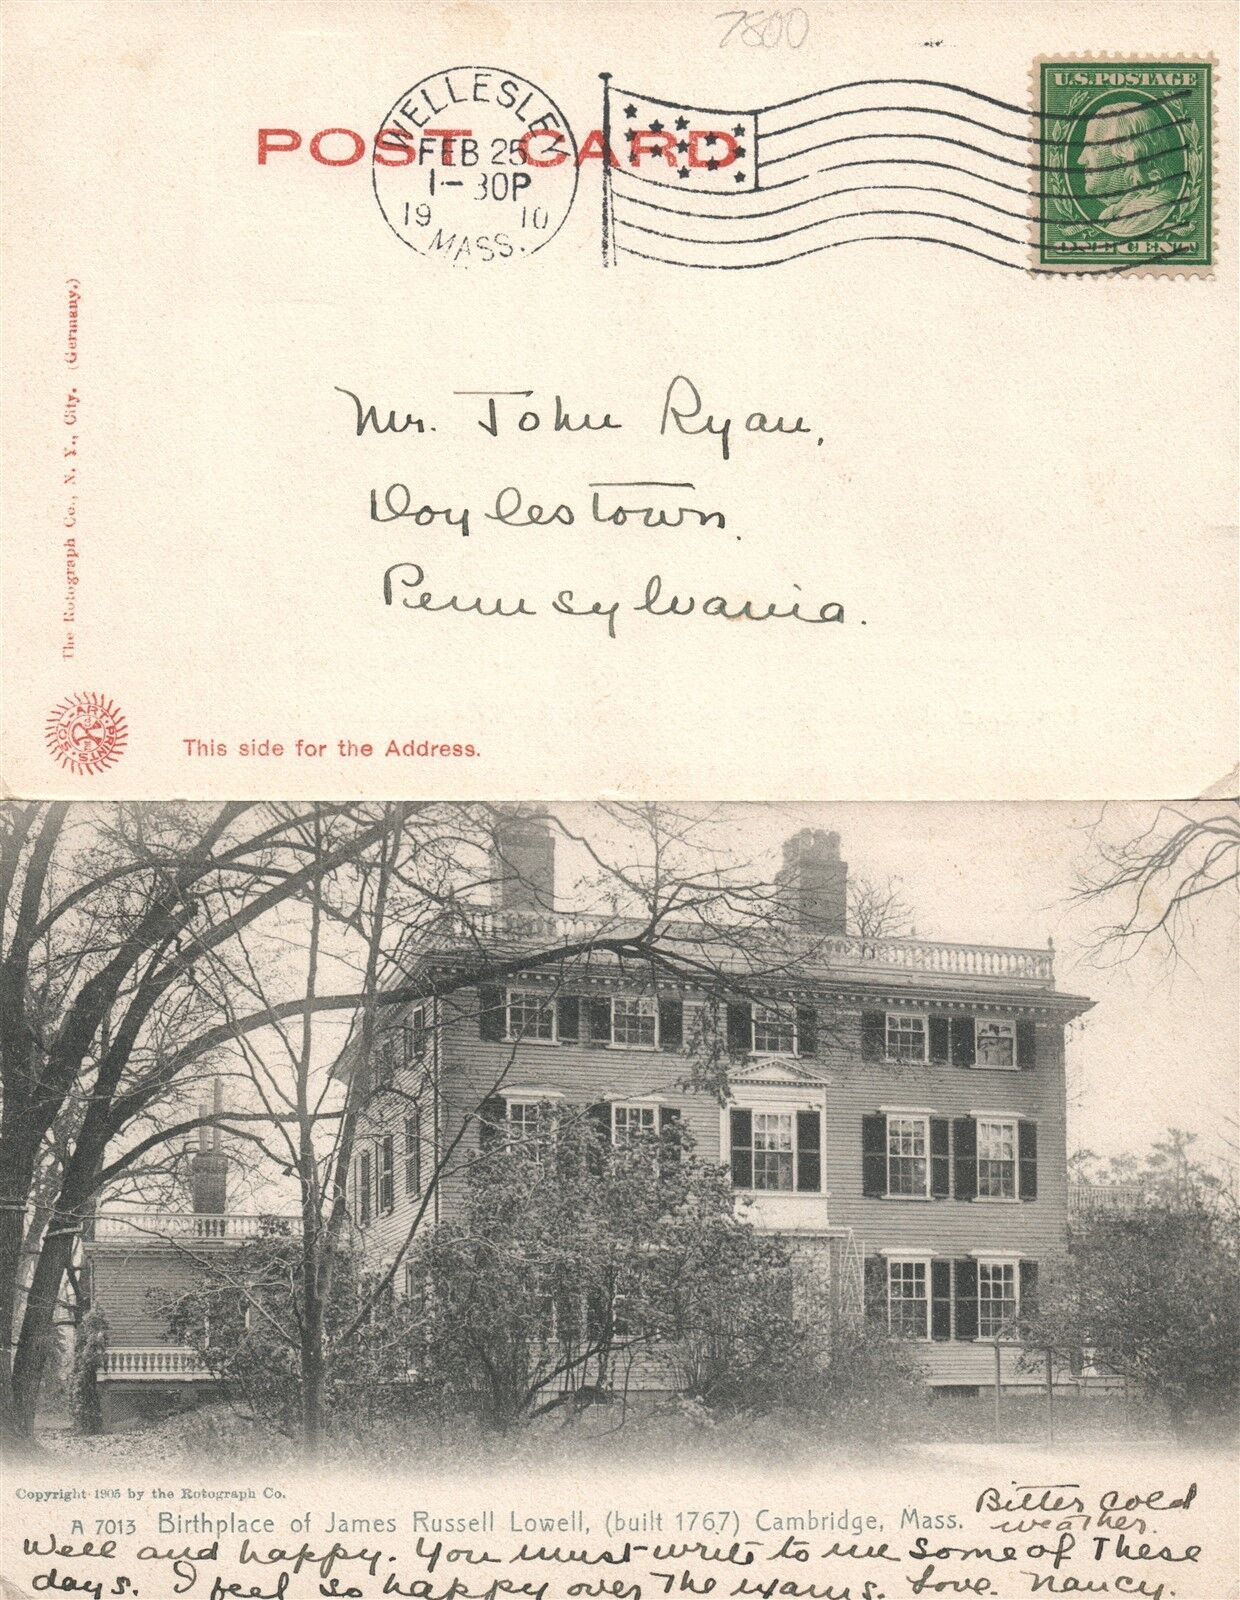 7800
U.S. POSTAGE
ONE CENT
WELLESLEY
FEB 25
1-30P
19 10
MASS.
POST CARD
The Rotograph Co., N. Y., City. (Germany.)
Mr. John Ryan,
Doylestown
Pennsylvania.
SOL-ART PRINTS
This side for the Address.
Copyright 1905 by the Rotograph Co.
A 7013 Birthplace of James Russell Lowell, (built 1767) Cambridge, Mass.
Bitter cold
weather.
Well and happy. You must write to me some of These
days. I feel so happy over The exams. Love. Nancy.